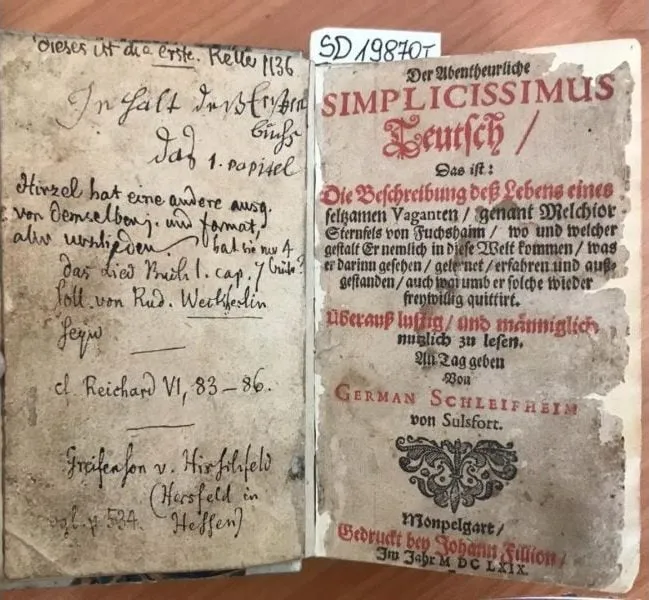 dieses ist die erste. Keller 1136
Inhalt deß Ersten
buchs
das 1. Capitel
Hirzel hat eine andere ausg.
von demselben j. und format,
aber verschieden
hat sie nur 4
das Lied Buch 1. cap. 7
soll von Rud. Weckherlin
seyn
cf. Reichard VI, 83-86.
Greifenson v. Hirschfeld
(Hersfeld in
vgl. p 534. Hessen)
SD 19870
Der Abentheurliche
SIMPLICISSIMUS
Teutsch /
Das ist:
Die Beschreibung deß Lebens eines
seltzamen Vaganten / genant Melchior
Sternfels von Fuchshaim / wo und welcher
gestalt Er nemlich in diese Welt kommen / was
er darinn gesehen / gelernet / erfahren und auß-
gestanden / auch warumb er solche wieder
freywillig quittirt.
Überauß lustig / und männiglich
nutzlich zu lesen.
An Tag geben
Von
GERMAN SCHLEIFHEIM
von Sulsfort.
Monpelgart /
Gedruckt bey Johann Fillion /
Im Jahr M DC LXIX.